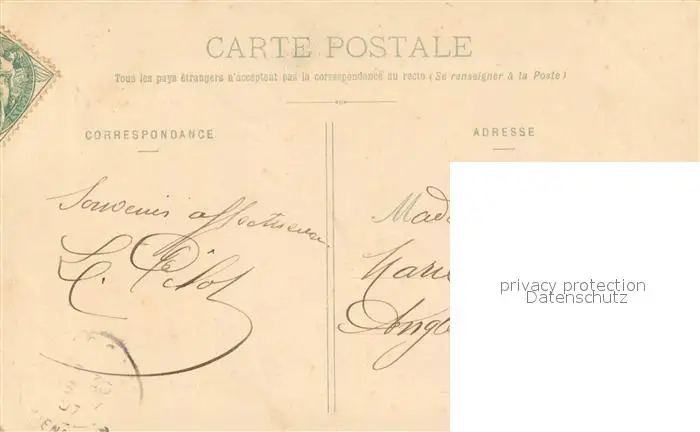 CARTE POSTALE
Tous les pays étrangers n'acceptent pas la correspondance au recto (Se renseigner à la Poste)
CORRESPONDANCE
ADRESSE
Souvenir affectueux
Mad
Angl
privacy protection
Datenschutz